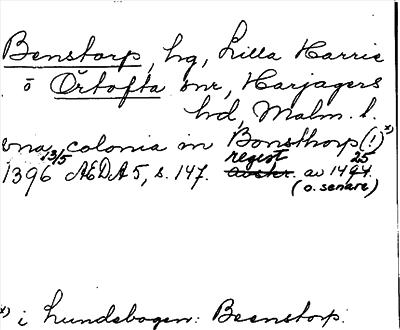 Benstorp, hg, Lilla Harrie
o Örtofta snr, Harjagers
hd, Malm. l.
vna colonia in Bonsthorp (!) x)
1396 13/5 ÆDA 5, s. 147. regist av 1494. 25
(o. senare)
x) i Lundebogen: Beenstorp.